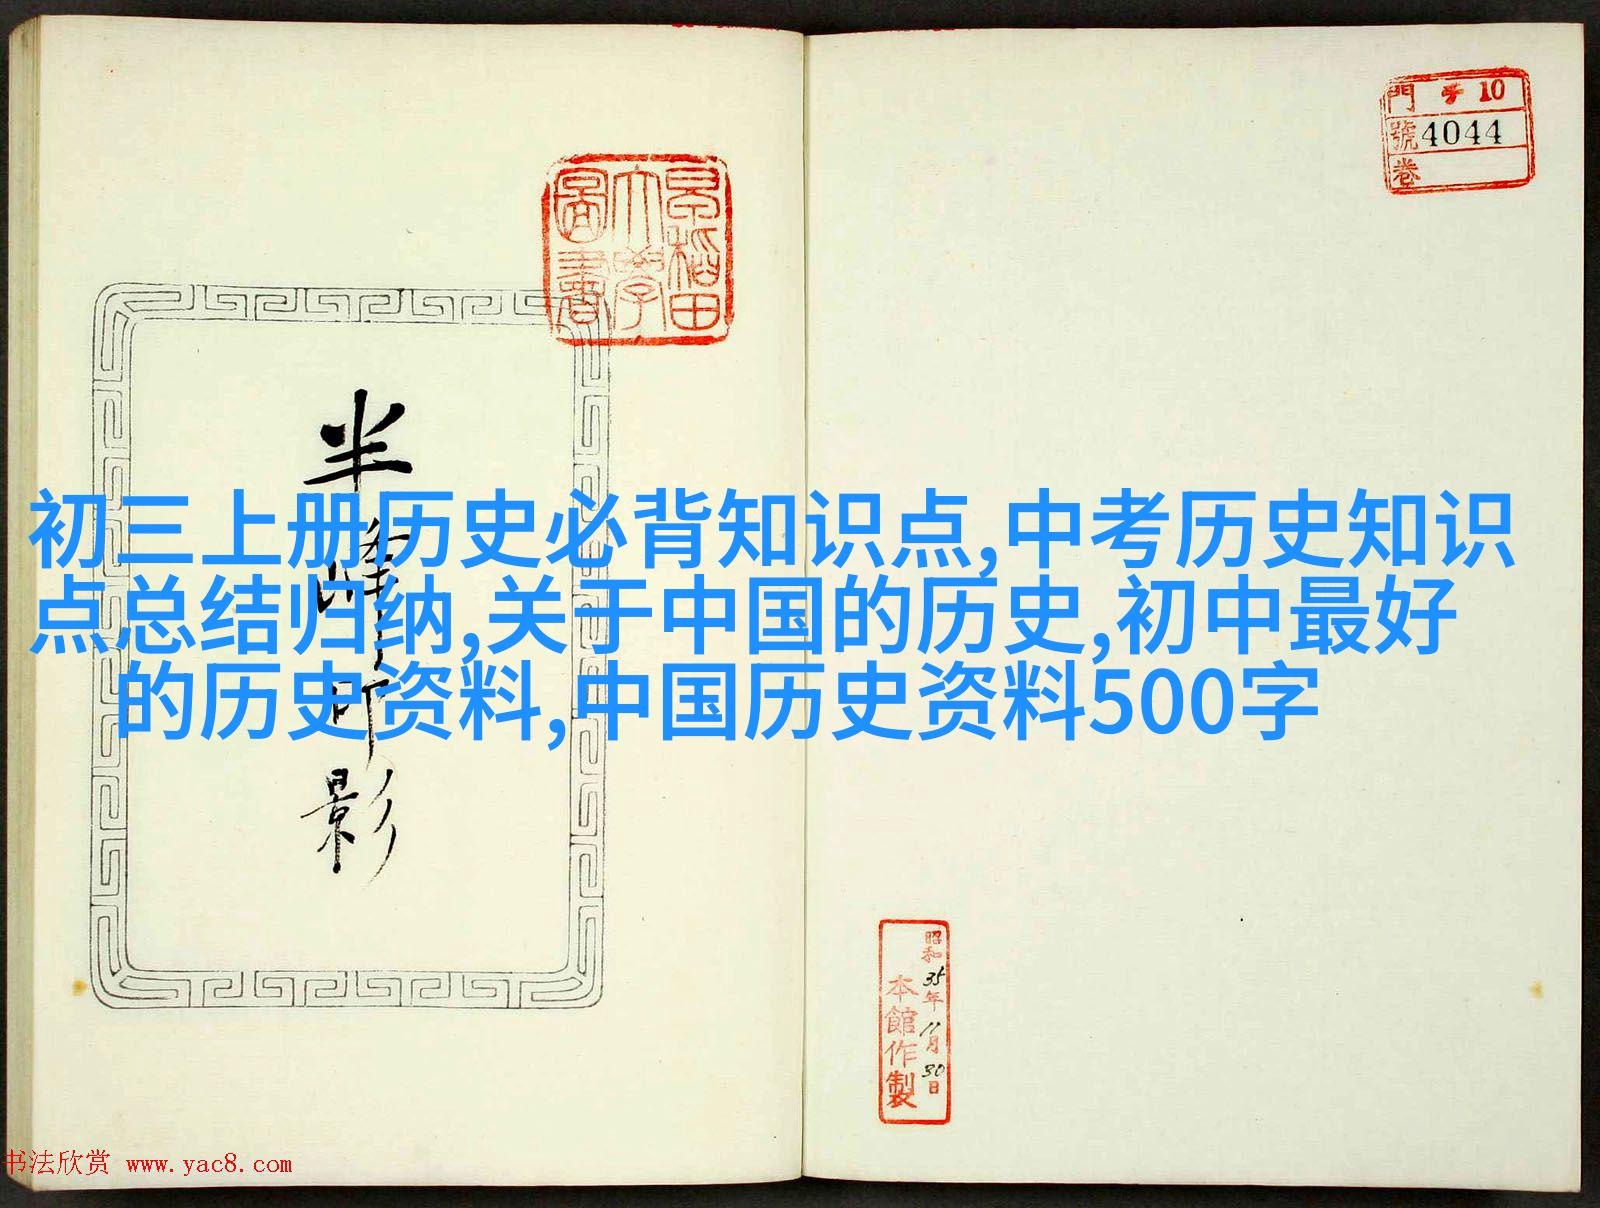 早稲田
大學
圖書
門 チ 10
號 4044
卷
半峰印影
初三上册历史必背知识点,中考历史知识
点总结归纳,关于中国的历史,初中最好
的历史资料,中国历史资料500字
昭和35年11月30日
本館作製
书法欣赏 www.yac8.com